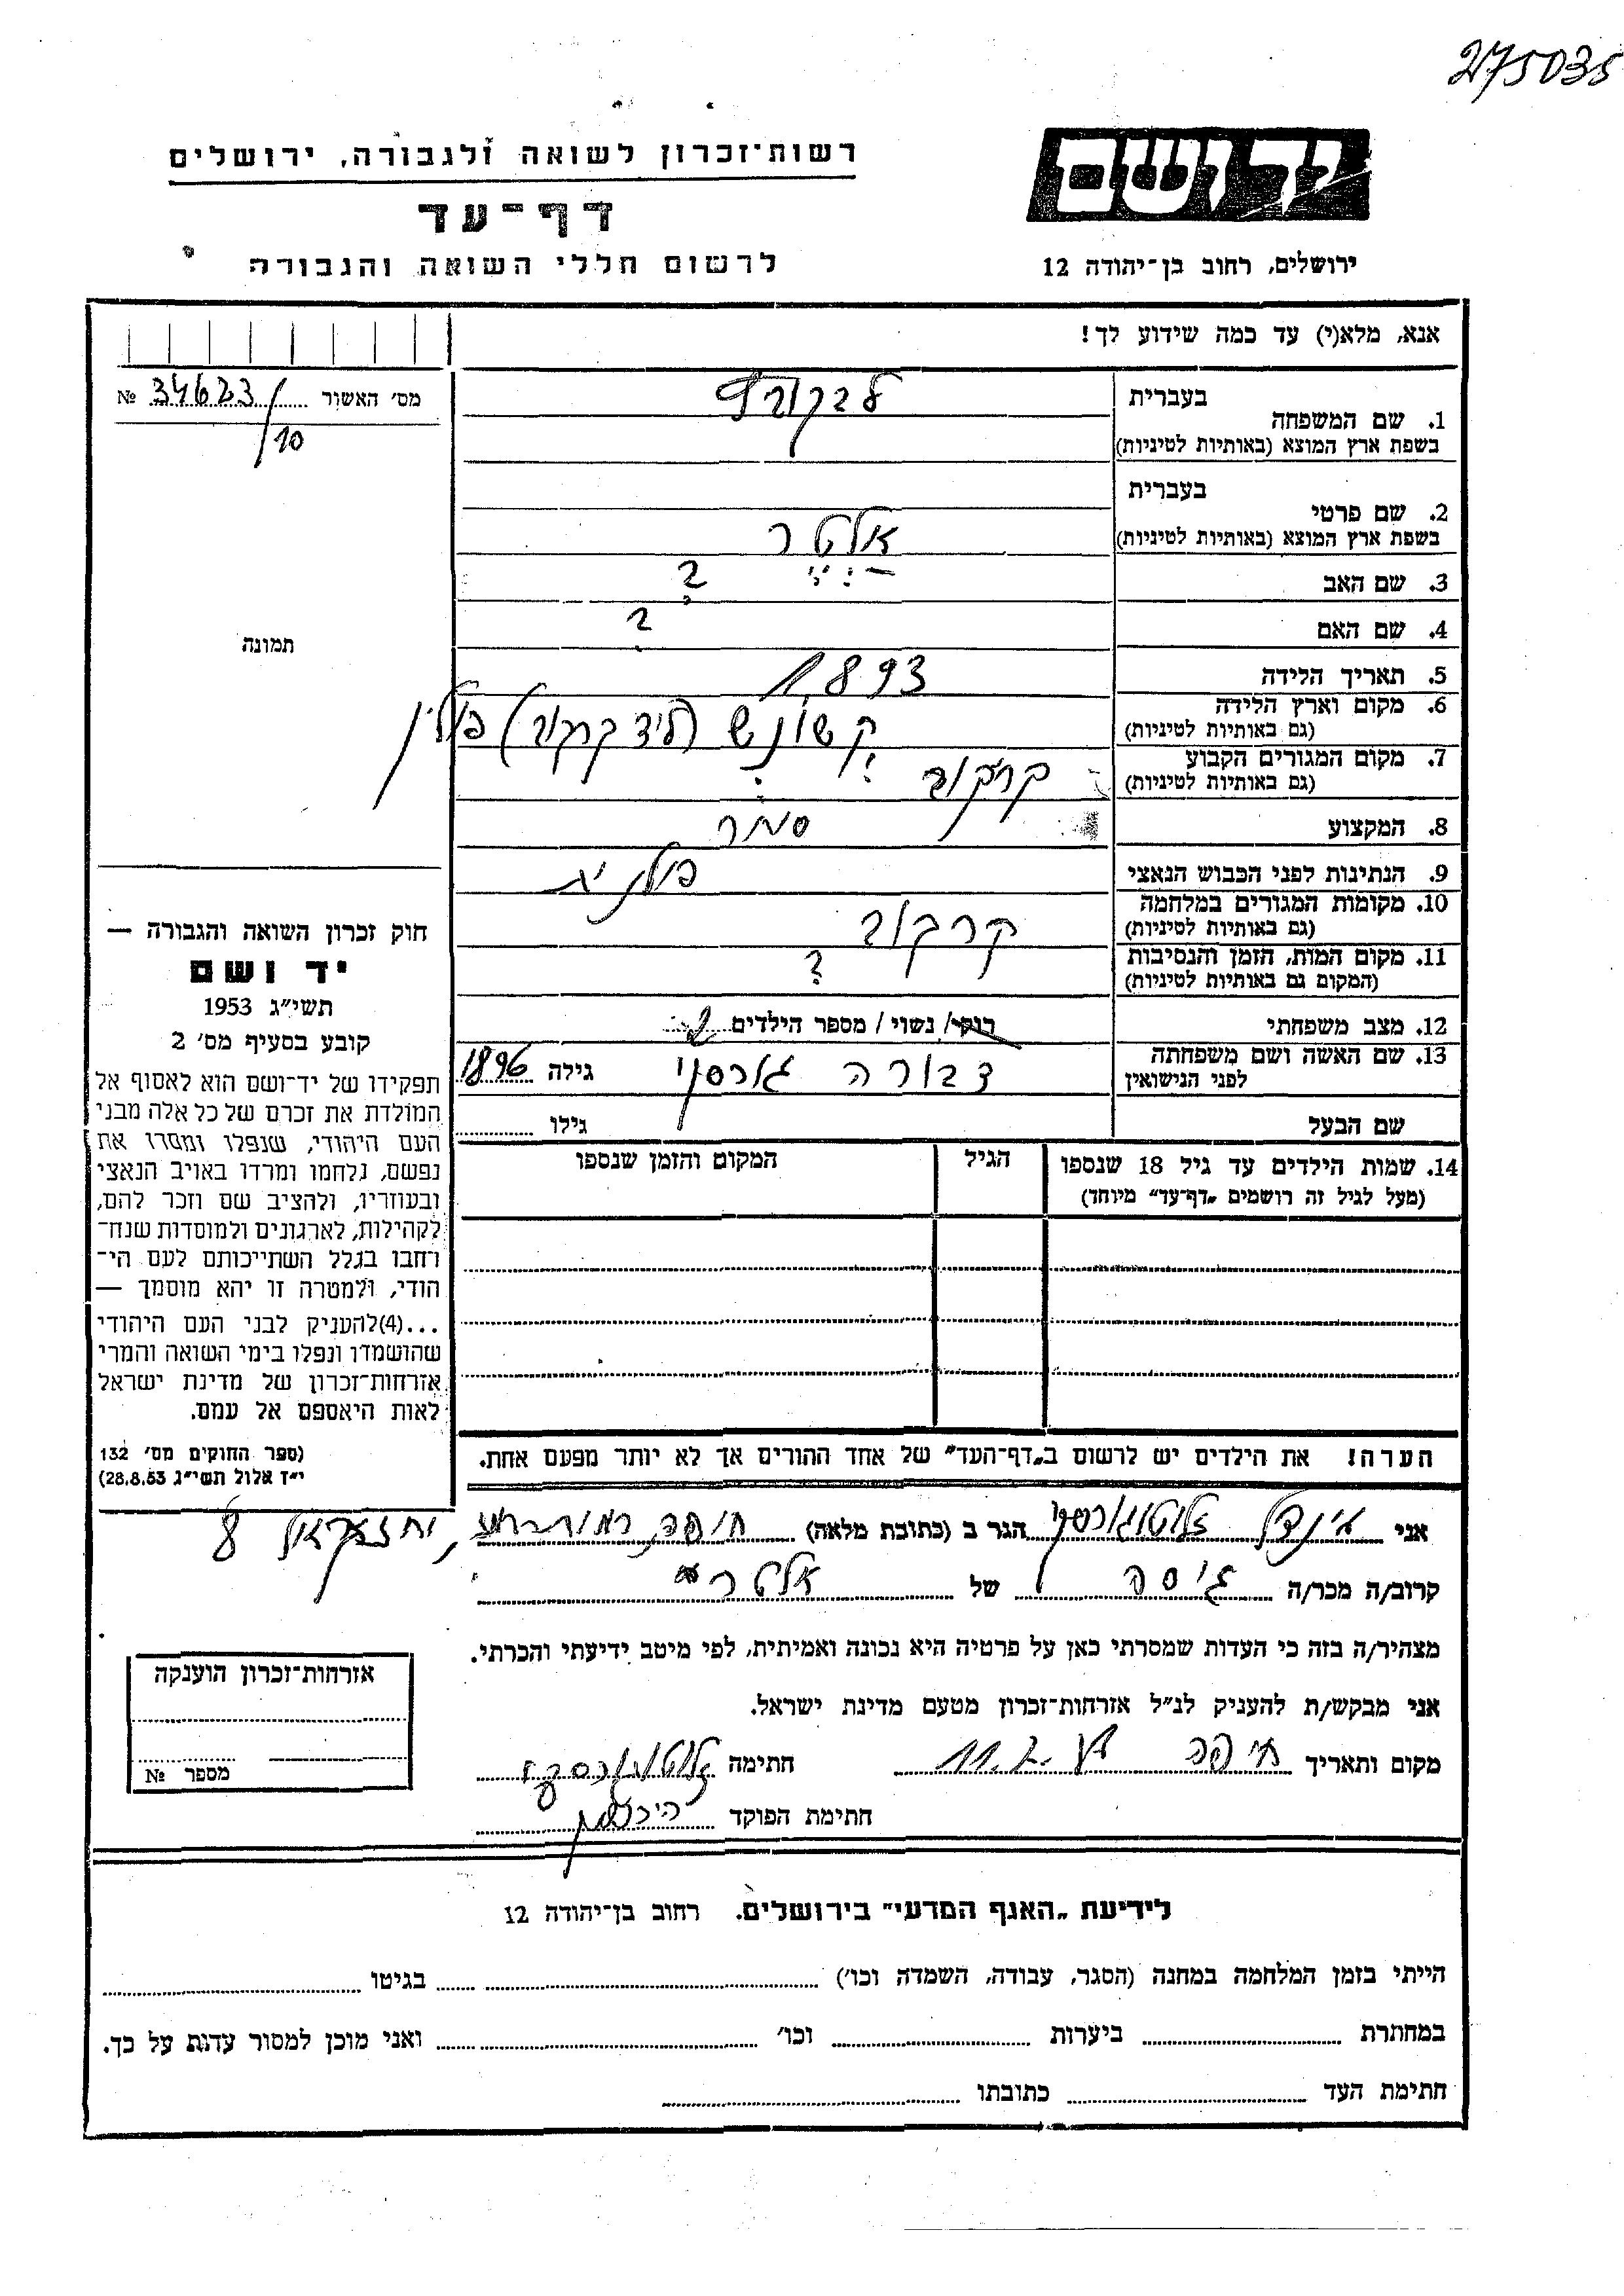 275035
יד ושם
רשות־זכרון לשואה ולגבורה, ירושלים
דף־עד
לרשום חללי השואה והגבורה
ירושלים, רחוב בן־יהודה 12
אנא, מלא(י) עד כמה שידוע לך!
מס׳ האשור 34623 №
/10
תמונה
1. שם המשפחה בעברית
בשפת ארץ המוצא (באותיות לטיניות)
2. שם פרטי בעברית
בשפת ארץ המוצא (באותיות לטיניות) אלטר
3. שם האב ?
4. שם האם ?
5. תאריך הלידה 1893
6. מקום וארץ הלידה (ליד קרקוב) פולין
(גם באותיות לטיניות)
7. מקום המגורים הקבוע קרקוב
(גם באותיות לטיניות)
8. המקצוע סוחר
9. הנתינות לפני הכבוש הנאצי פולנית
10. מקומות המגורים במלחמה קרקוב
(גם באותיות לטיניות)
11. מקום המות, הזמן והנסיבות ?
(המקום גם באותיות לטיניות)
12. מצב משפחתי רווק/ נשוי / מספר הילדים 2
13. שם האשה ושם משפחתה דבורה גילה 1896
לפני הנישואין
שם הבעל גילו
14. שמות הילדים עד גיל 18 שנספו הגיל המקום והזמן שנספו
(מעל לגיל זה רושמים „דף־עד״ מיוחד)
הערה! את הילדים יש לרשום ב„דף־העד״ של אחד ההורים אך לא יותר מפעם אחת.
חוק זכרון השואה והגבורה —
יד ושם
תשי״ג 1953
קובע בסעיף מס׳ 2
תפקידו של יד־ושם הוא לאסוף אל
המולדת את זכרם של כל אלה מבני
העם היהודי, שנפלו ומסרו את
נפשם, נלחמו ומרדו באויב הנאצי
ובעוזריו, ולהציב שם וזכר להם,
לקהילות, לארגונים ולמוסדות שנח־
רחבו בגלל השתייכותם לעם הי־
הודי, ולמטרה זו יהא מוסמך —
...(4)להעניק לבני העם היהודי
שהושמדו ונפלו בימי השואה והמרי
אזרחות־זכרון של מדינת ישראל
לאות היאספם אל עמם.
(ספר החוקים מס׳ 132
י״ד אלול תשי״ג 28.8.53)
אני הגר ב (כתובת מלאה) חיפה, יחזקאל 8
קרוב/ה מכר/ה גיסה של אלטר
מצהיר/ה בזה כי העדות שמסרתי כאן על פרטיה היא נכונה ואמיתית, לפי מיטב ידיעתי והכרתי.
אני מבקש/ת להעניק לנ״ל אזרחות־זכרון מטעם מדינת ישראל.
מקום ותאריך חיפה חתימה
חתימת הפוקד
אזרחות־זכרון הוענקה
מספר №
לידיעת „האגף המדעי״ בירושלים. רחוב בן־יהודה 12
הייתי בזמן המלחמה במחנה (הסגר, עבודה, השמדה וכו׳) בגיטו
במחתרת ביערות וכו׳ ואני מוכן למסור עדות על כך.
חתימת העד כתובתו